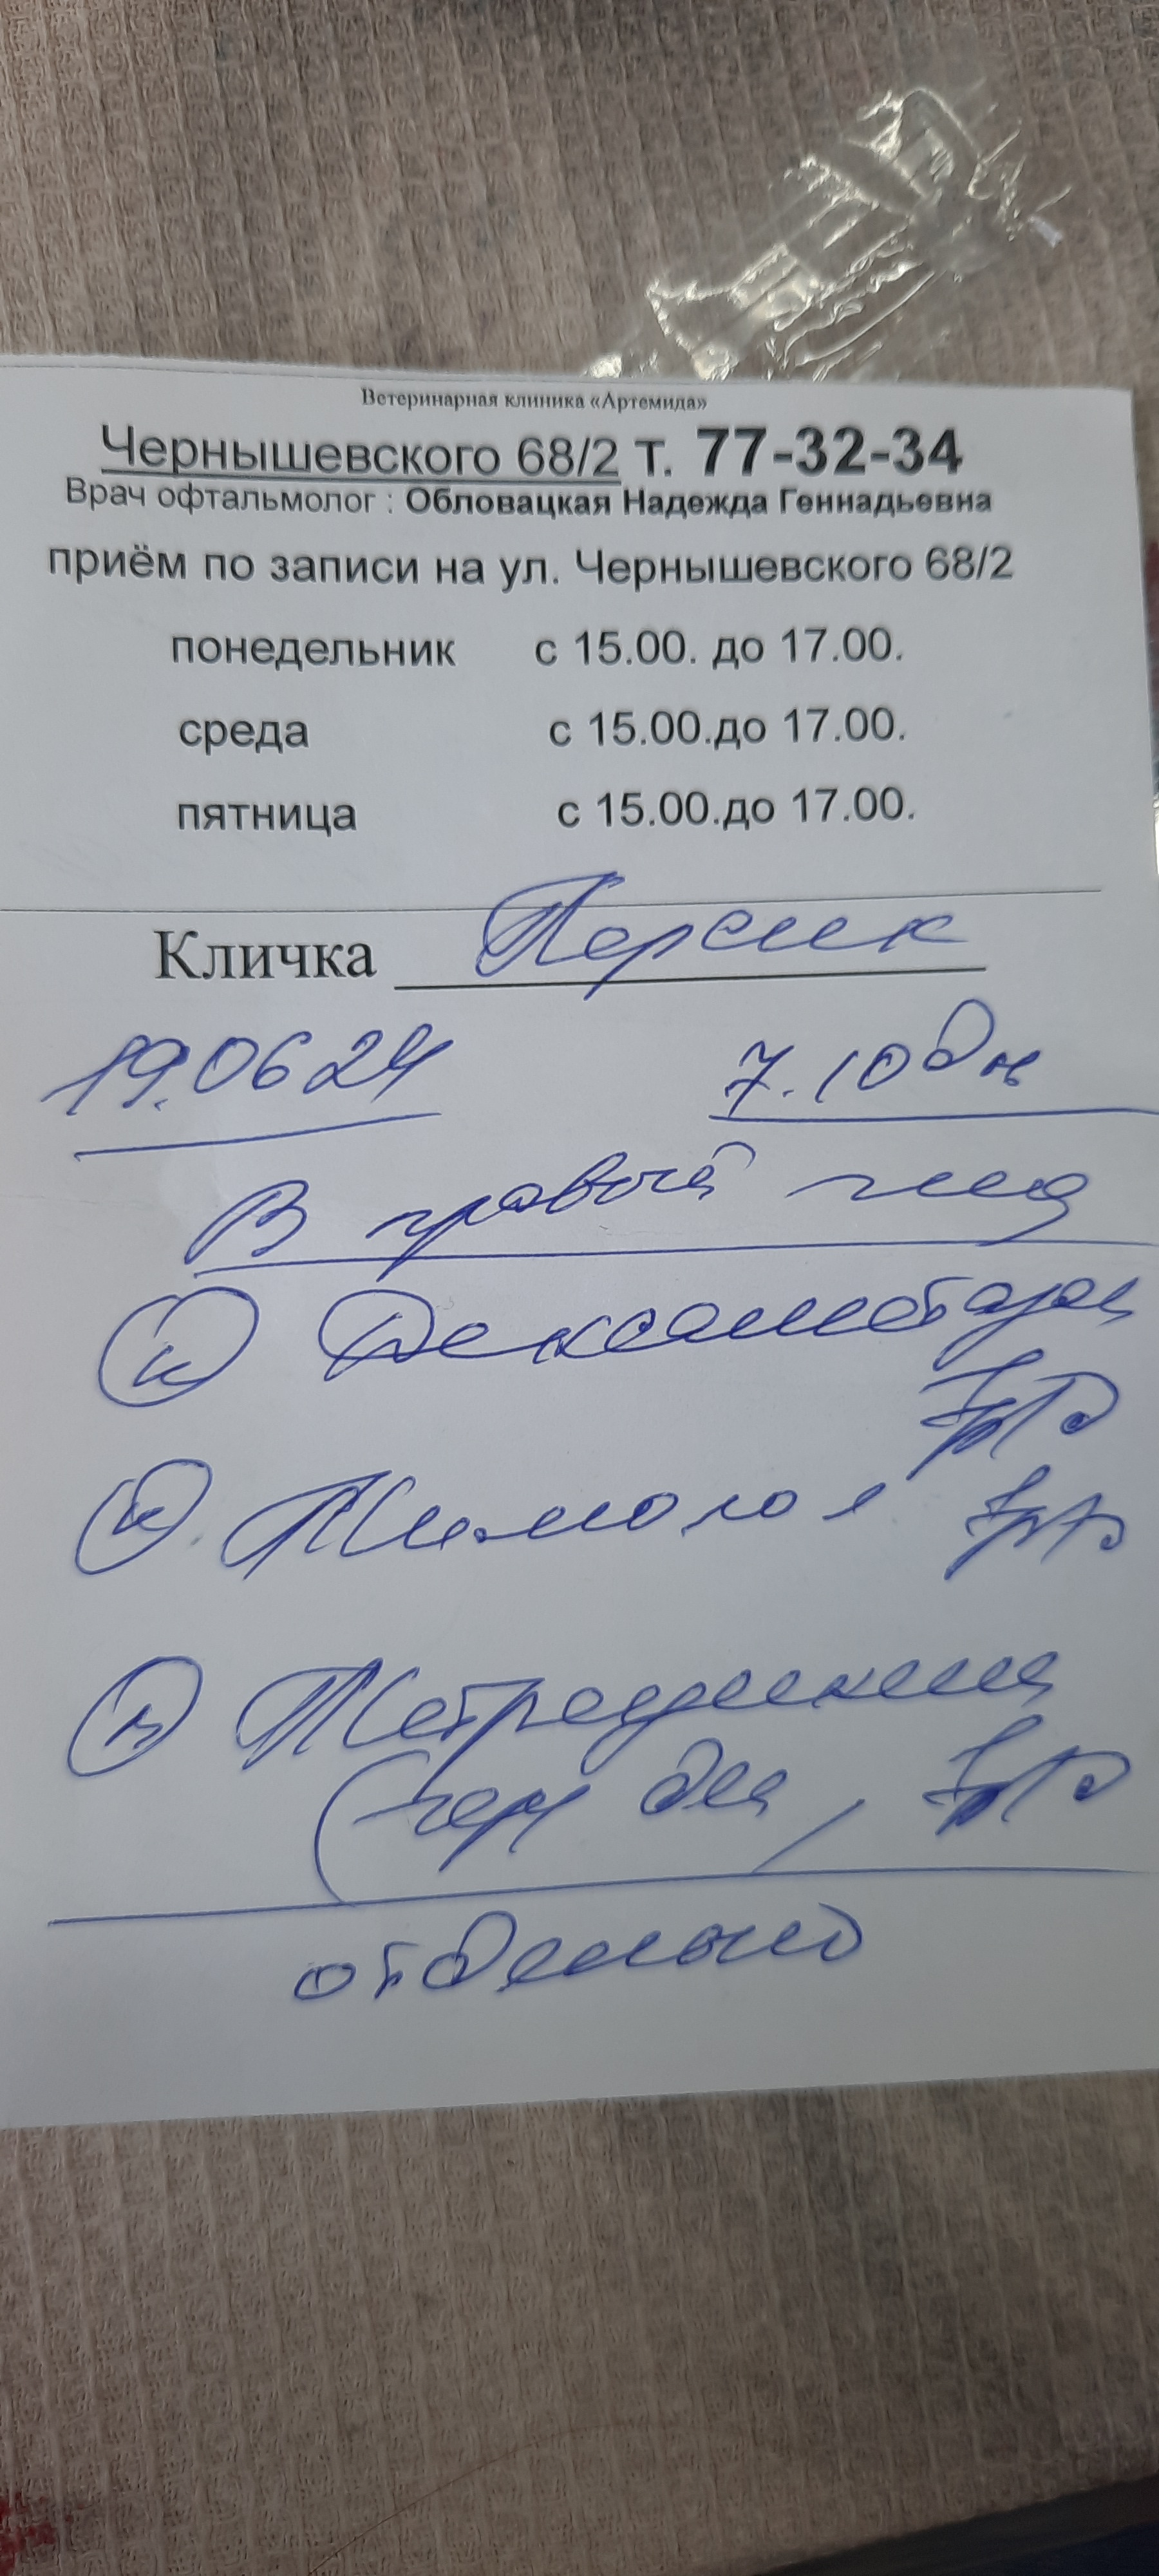 Ветеринарная клиника «Артемида»
Чернышевского 68/2 т. 77-32-34
Врач офтальмолог : Обловацкая Надежда Геннадьевна
приём по записи на ул. Чернышевского 68/2
понедельник с 15.00. до 17.00.
среда с 15.00.до 17.00.
пятница с 15.00.до 17.00.
Кличка Персик
19.06 24 7.10 дн
В правый глаз
к Дексаметазон
к Тимолол
Тетрациклин